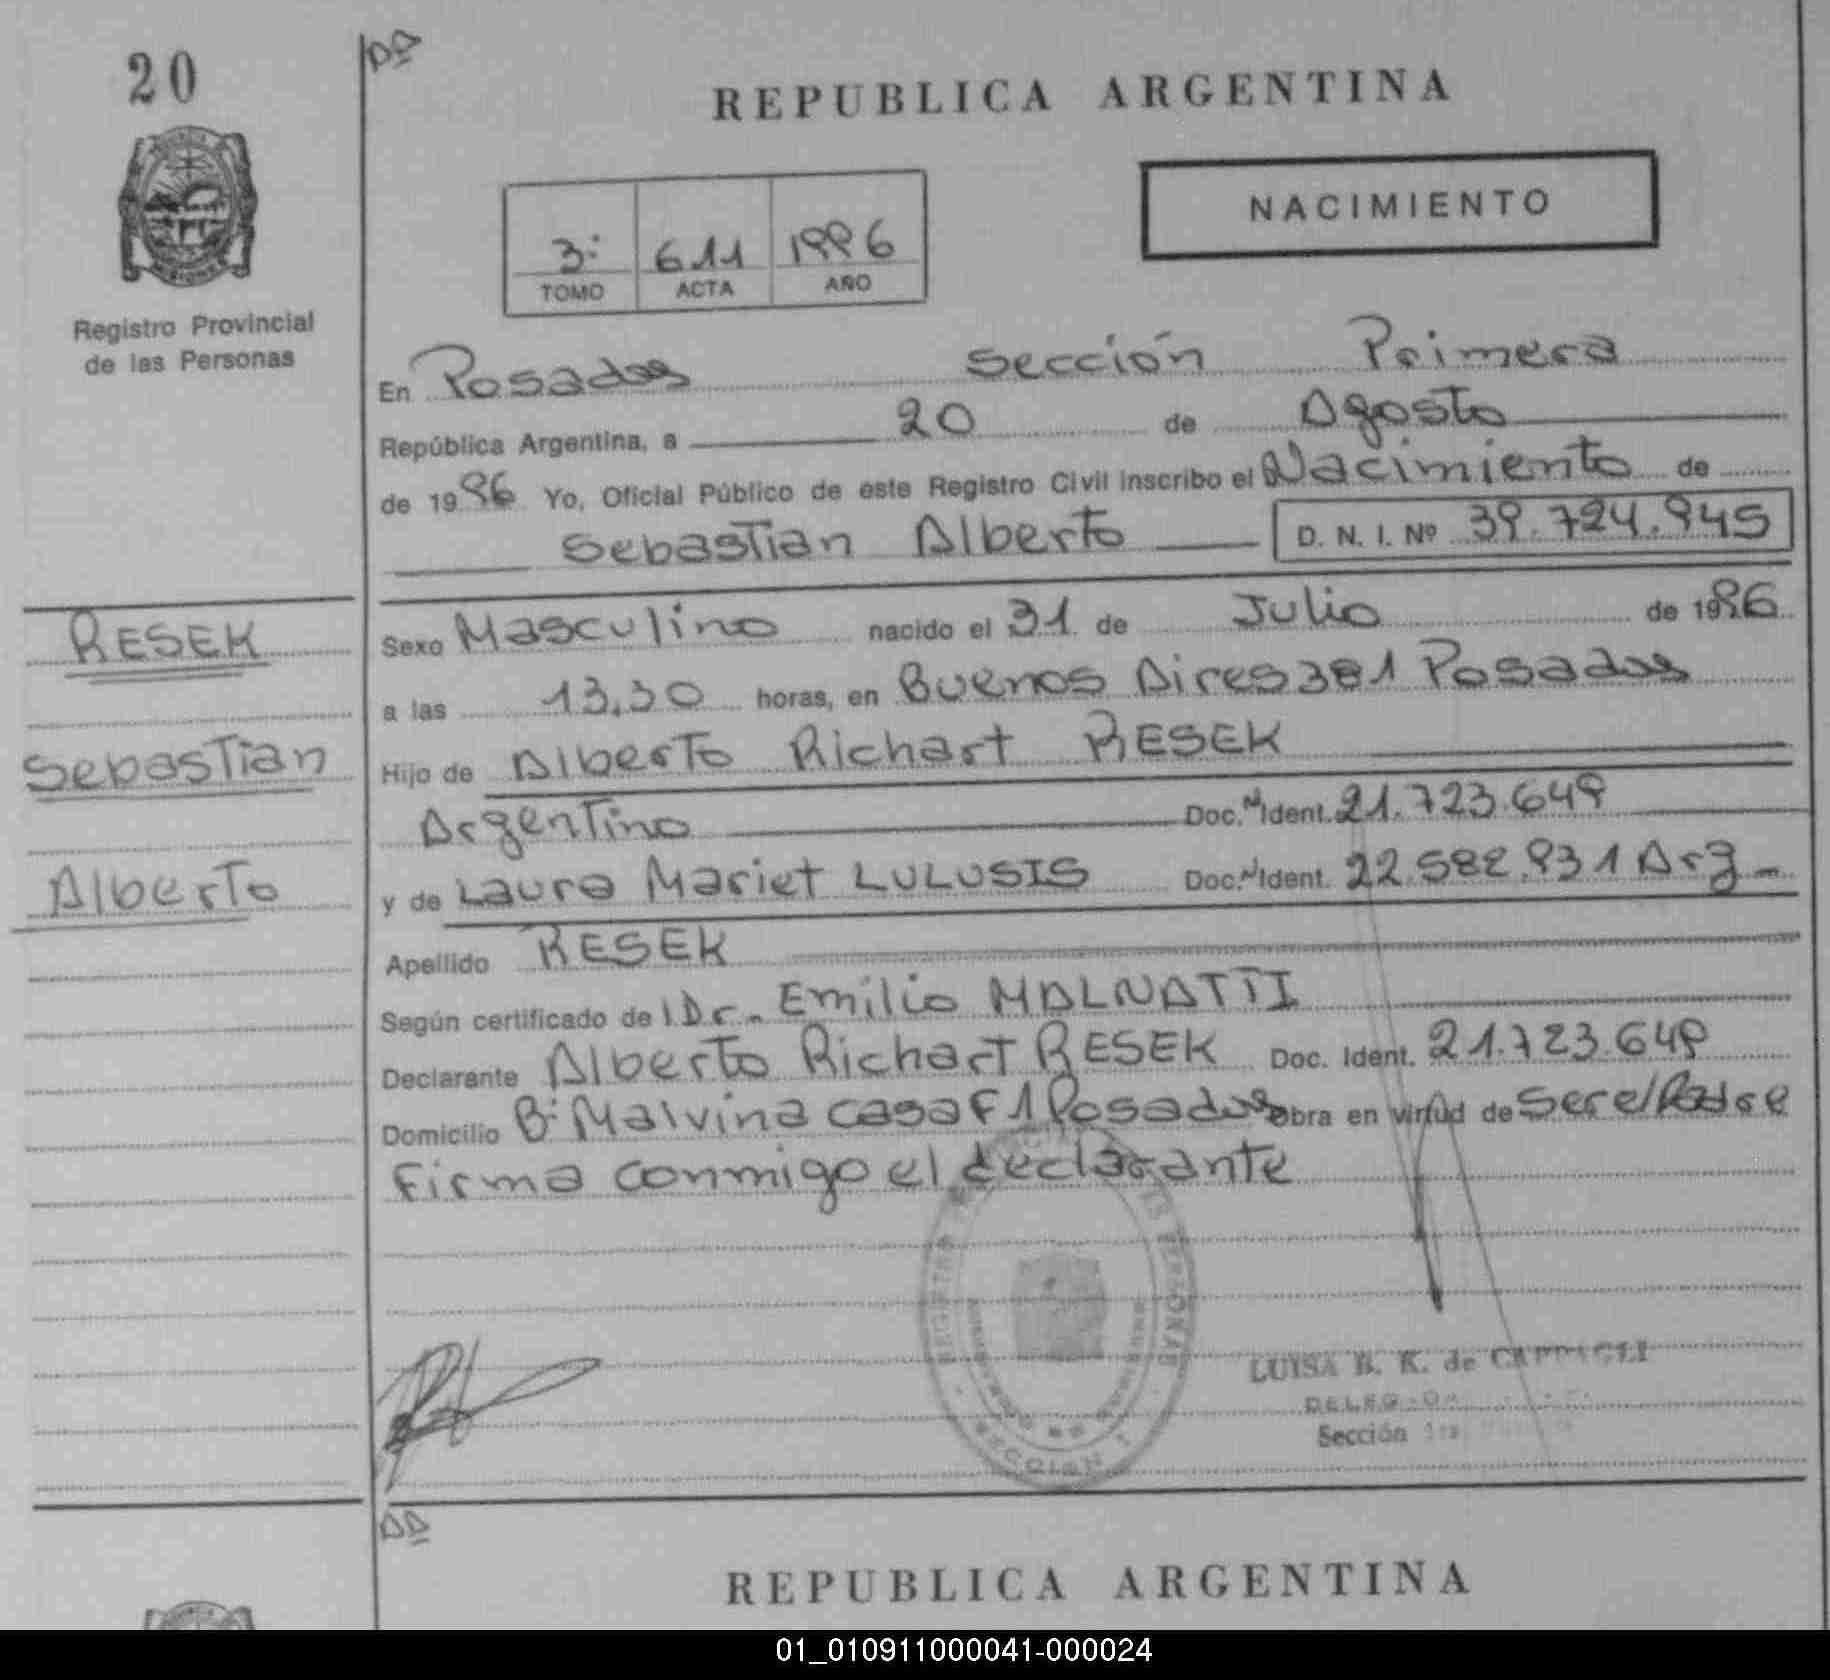 20
REPUBLICA ARGENTINA
NACIMIENTO
3: 611 1996
TOMO ACTA AÑO
Registro Provincial
de las Personas
En Posadas Sección Primera
República Argentina, a 20 de Agosto
de 1996 Yo, Oficial Público de este Registro Civil inscribo el Nacimiento de
Sebastian Alberto D. N. I. Nº 39.724.945
RESEK
Sebastian
Alberto
Sexo Masculino nacido el 31 de Julio de 1996
a las 13,30 horas, en Buenos Aires 381 Posadas
Hijo de Alberto Richart RESEK
Argentino Doc. N Ident. 21.723.649
y de Laura Mariet LULUSIS Doc. N Ident. 22.582.931 Arg_
Apellido RESEK
Según certificado de l Dr. Emilio MALNATTI
Declarante Alberto Richart RESEK Doc. Ident. 21.723.649
Domicilio B: Malvina casa F1 Posadas Obra en virtud de Ser el Padre
Firma conmigo el declarante
LUISA B. K. de
Sección
REPUBLICA ARGENTINA
01_010911000041-000024